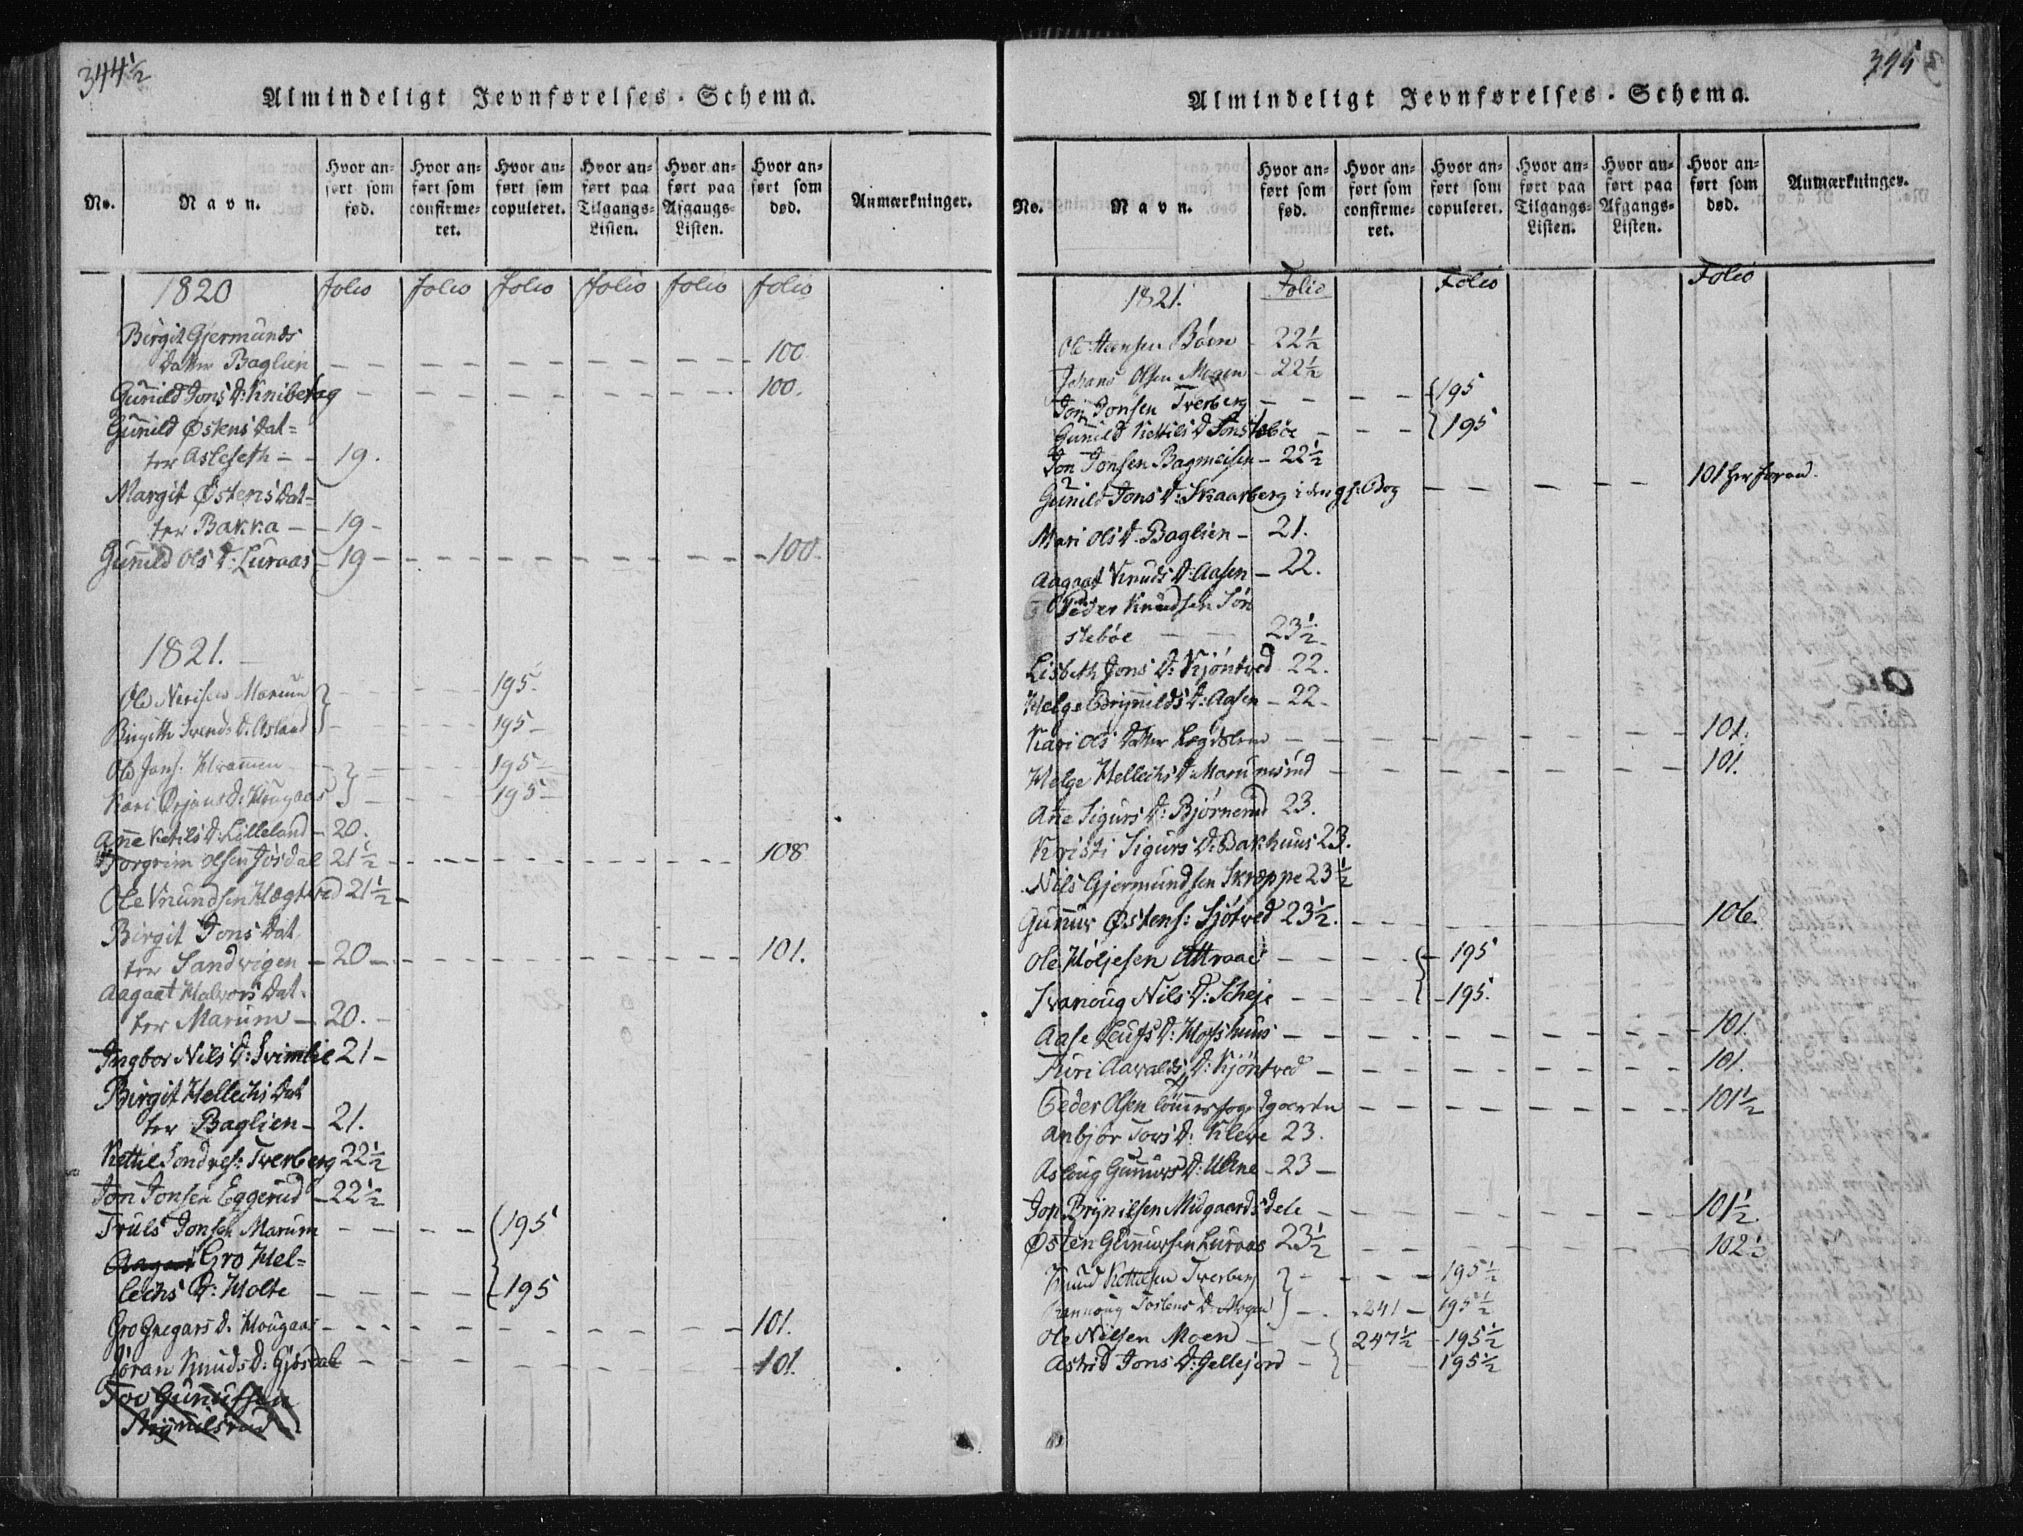 344½
Almindeligt Jevnførelses-Schema.
No. Navn. Hvor anført som fød. Hvor anført som confirmeret. Hvor anført som copuleret. Hvor anført paa Tilgangs-Listen. Hvor anført paa Afgangs-Listen. Hvor anført som død. Anmærkninger.
1820 folio folio folio folio folio folio
Birgit Gjermunds
Datter Baglien 100.
Gunild Jons D: 100.
Gunild Østens Dat=
ter Asleseth - 19.
Margit Østens Dat=
ter Bakka - 19 -
Gunild Ols D: Luraas 19 - 100.
1821.
Ole Marum 195.
Birgith D: Asland 195 -
Ole Jons: 195 -
Kari D: 195 -
Anne Ketils D: Lilleland - 20.
Torgrim Olsen Jøsdal 21½ 108
Ole 21½ -
Birgit Jons Dat
ter Sandvigen - 20 - 101.
Aagaat Halvors Dat-
ter Marum - 20. -
Ingbor Nils D: 21 -
Birgit Hellechs Dat
ter Baglien - 21.
Kettil Sondres: Tverberg 22½
Jon Jonsen Eggerud - 22½
Truls Jonsen Marum - 195
Aagaat Gro Hel=
lechs D: Holte - 195
Gro Gregars D: Hougaas - 101.
Jøran Knuds D: Gjøsdal - 101.
Tov Gunulfsen
395
Almindeligt Jevnførelses-Schema.
No. Navn. Hvor anført som fød. Hvor anført som confirmeret. Hvor anført som copuleret. Hvor anført paa Tilgangs-Listen. Hvor anført paa Afgangs-Listen. Hvor anført som død. Anmærkninger.
1821. Folio Folio Folio
Ole Hansen Bøen - 22½
Johans Olsen Mogen - 22½
Jon Jonsen Tverberg - 195
Gunild Kettils D: 195
Jon Jonsen Bagmeisen - 22½
Gunild Jons D: Skaarberg i den gl: Bog - 101 her foran.
Mari Ols D: Baglien - 21.
Aagaat Knuds D: Aasen - 22.
Peder Knudsen Søn
stebøe - 23½
Lisbeth Jons D: Kjøntved 22.
Helge Brynnilds D: Aasen - 22 -
Kari Ols Datter - 101.
Helge Hellechs D: - 101.
Ane Sigurs D: Bjørnerud 23.
Kristi Sigurs D: Bakhuus 23.
Nils Gjermundsen Skreppe 23½
Gunnur Østens: 23½. 106.
Ole Høljesen - 195
Nils D: Scheje - 195.
Aase Leufs D: Hofshuus - 101.
Turi Aavalds D: Kjøntved - 101.
Peder Olsen - 101½
Anbjør Tovs D: Kleve 23.
Asloug Gunnurs D: - 23 -
Jon Brynilsen Midgaardsdele - 101½.
Østen Gunnursen Luraas 23½ 102½
Knud Kettilsen Tverberg - 195½
Tostens D: Mogen - 241 - 195½
Ole Nilsen Moen - 247½ - 195½
Astrid Jons D: - 195½